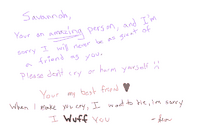 Savannah,
Your an amazing person, and I'm
sorry I will never be as great of
a friend as you.
Please don't cry or harm yourself
Your my best friend
When I make you cry, I want to die, i'm sorry
I Wuff you